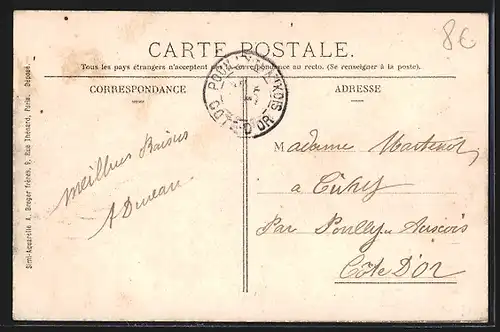 8€
CARTE POSTALE.
Tous les pays étrangers n'acceptent pas la correspondance au recto. (Se renseigner à la poste).
CORRESPONDANCE
ADRESSE
COTE-D'OR
Meilleurs Baisers
Madame
à
Par Pouilly en Auxois
Côte D'Or
Simi-Aquarelle A. Breger frères, 9, Rue Thénard, Paris. Déposé.